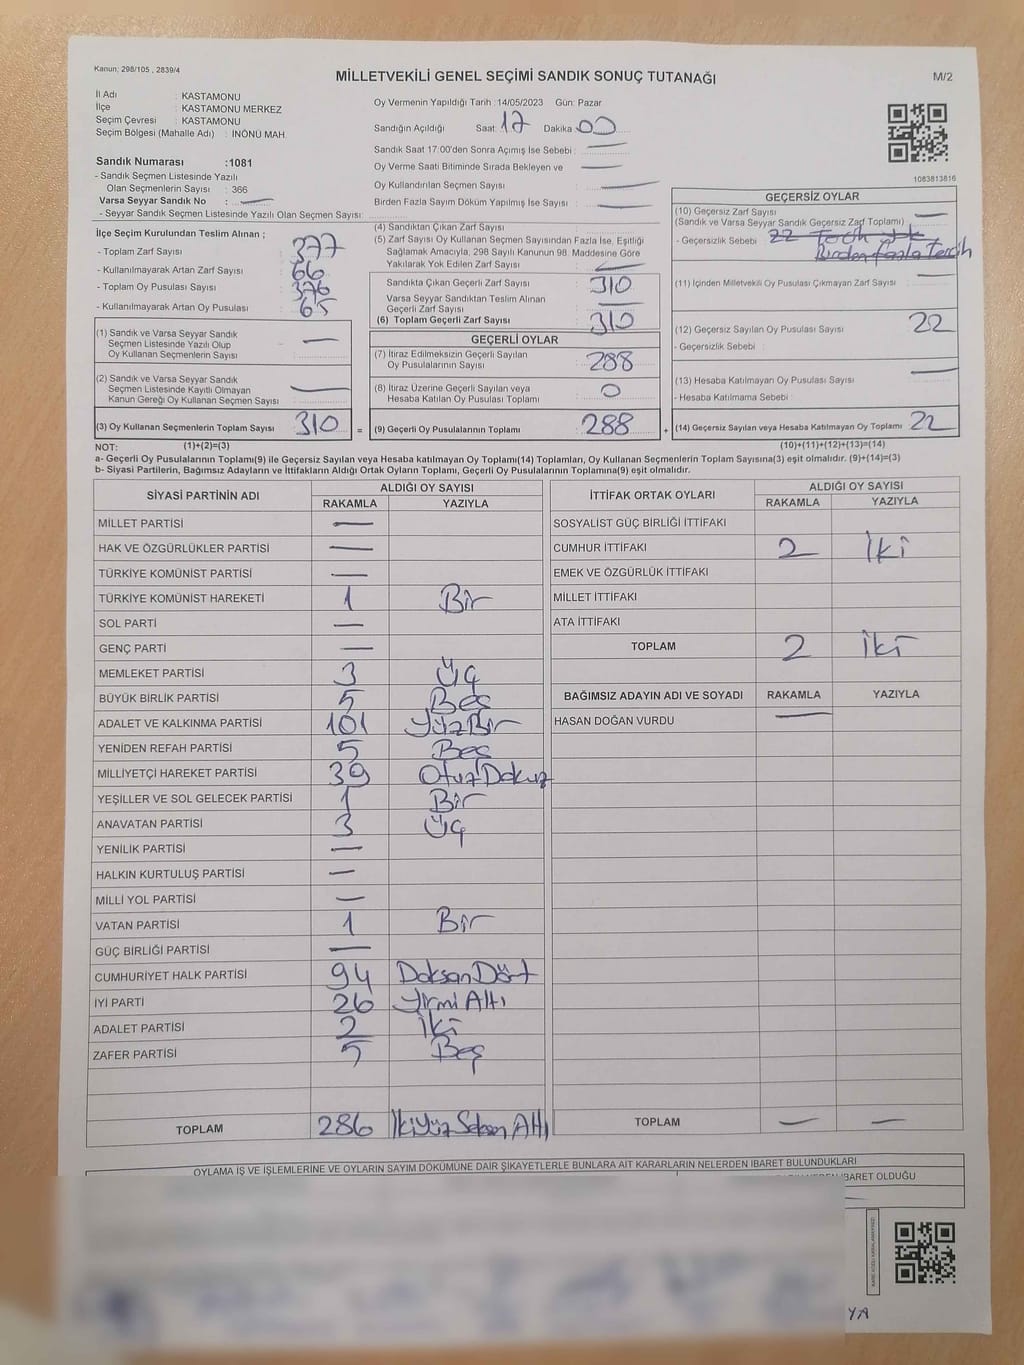 Kanun; 298/105 , 2839/4
MİLLETVEKİLİ GENEL SEÇİMİ SANDIK SONUÇ TUTANAĞI
M/2
İl Adı : KASTAMONU
İlçe : KASTAMONU MERKEZ
Seçim Çevresi : KASTAMONU
Seçim Bölgesi (Mahalle Adı) : İNÖNÜ MAH.
Sandık Numarası :1081
- Sandık Seçmen Listesinde Yazılı
Olan Seçmenlerin Sayısı : 366
Varsa Seyyar Sandık No : —
- Seyyar Sandık Seçmen Listesinde Yazılı Olan Seçmen Sayısı:
İlçe Seçim Kurulundan Teslim Alınan ;
- Toplam Zarf Sayısı : 377
- Kullanılmayarak Artan Zarf Sayısı : 66
- Toplam Oy Pusulası Sayısı : 376
- Kullanılmayarak Artan Oy Pusulası : 65
(1) Sandık ve Varsa Seyyar Sandık
Seçmen Listesinde Yazılı Olup
Oy Kullanan Seçmenlerin Sayısı : —
(2) Sandık ve Varsa Seyyar Sandık
Seçmen Listesinde Kayıtlı Olmayan
Kanun Gereği Oy Kullanan Seçmen Sayısı : —
(3) Oy Kullanan Seçmenlerin Toplam Sayısı : 310 =
Oy Vermenin Yapıldığı Tarih :14/05/2023 Gün: Pazar
Sandığın Açıldığı Saat: 17 Dakika 00
Sandık Saat 17:00'den Sonra Açımış İse Sebebi : —
Oy Verme Saati Bitiminde Sırada Bekleyen ve —
Oy Kullandırılan Seçmen Sayısı : —
Birden Fazla Sayım Döküm Yapılmış İse Sayısı : —
(4) Sandıktan Çıkan Zarf Sayısı :
(5) Zarf Sayısı Oy Kullanan Seçmen Sayısından Fazla İse, Eşitliği
Sağlamak Amacıyla, 298 Sayılı Kanunun 98. Maddesine Göre
Yakılarak Yok Edilen Zarf Sayısı : —
Sandıkta Çıkan Geçerli Zarf Sayısı : 310
Varsa Seyyar Sandıktan Teslim Alınan
Geçerli Zarf Sayısı : —
(6) Toplam Geçerli Zarf Sayısı : 310
GEÇERLİ OYLAR
(7) İtiraz Edilmeksizin Geçerli Sayılan
Oy Pusulalarının Sayısı : 288
(8) İtiraz Üzerine Geçerli Sayılan veya
Hesaba Katılan Oy Pusulası Toplamı : 0
(9) Geçerli Oy Pusulalarının Toplamı : 288 +
1083813816
GEÇERSİZ OYLAR
(10) Geçersiz Zarf Sayısı —
(Sandık ve Varsa Seyyar Sandık Geçersiz Zarf Toplamı)
- Geçersizlik Sebebi : 22
Birden fazla Tercih
(11) İçinden Milletvekili Oy Pusulası Çıkmayan Zarf Sayısı : —
(12) Geçersiz Sayılan Oy Pusulası Sayısı : 22
- Geçersizlik Sebebi :
(13) Hesaba Katılmayan Oy Pusulası Sayısı : —
- Hesaba Katılmama Sebebi :
(14) Geçersiz Sayılan veya Hesaba Katılmayan Oy Pusulası Toplamı 22
NOT: (1)+(2)=(3) (10)+(11)+(12)+(13)=(14)
a- Geçerli Oy Pusulalarının Toplamı(9) ile Geçersiz Sayılan veya Hesaba katılmayan Oy Pusulası Toplamı(14) Toplamları, Oy Kullanan Seçmenlerin Toplam Sayısına(3) eşit olmalıdır. (9)+(14)=(3)
b- Siyasi Partilerin, Bağımsız Adayların ve İttifakların Aldığı Ortak Oyların Toplamı, Geçerli Oy Pusulalarının Toplamına(9) eşit olmalıdır.
SİYASİ PARTİNİN ADI ALDIĞI OY SAYISI
RAKAMLA YAZIYLA
MİLLET PARTİSİ —
HAK VE ÖZGÜRLÜKLER PARTİSİ —
TÜRKİYE KOMÜNİST PARTİSİ —
TÜRKİYE KOMÜNİST HAREKETİ 1 Bir
SOL PARTİ —
GENÇ PARTİ —
MEMLEKET PARTİSİ 3 Üç
BÜYÜK BİRLİK PARTİSİ 5 Beş
ADALET VE KALKINMA PARTİSİ 101 YüzBir
YENİDEN REFAH PARTİSİ 5 Beş
MİLLİYETÇİ HAREKET PARTİSİ 39 OtuzDokuz
YEŞİLLER VE SOL GELECEK PARTİSİ 1 Bir
ANAVATAN PARTİSİ 3 Üç
YENİLİK PARTİSİ —
HALKIN KURTULUŞ PARTİSİ —
MİLLİ YOL PARTİSİ —
VATAN PARTİSİ 1 Bir
GÜÇ BİRLİĞİ PARTİSİ —
CUMHURİYET HALK PARTİSİ 94 DoksanDört
İYİ PARTİ 26 Yirmi Altı
ADALET PARTİSİ 2 İki
ZAFER PARTİSİ 5 Beş
TOPLAM 286 İkiYüz Seksen Altı
İTTİFAK ORTAK OYLARI ALDIĞI OY SAYISI
RAKAMLA YAZIYLA
SOSYALİST GÜÇ BİRLİĞİ İTTİFAKI
CUMHUR İTTİFAKI 2 İki
EMEK VE ÖZGÜRLÜK İTTİFAKI
MİLLET İTTİFAKI
ATA İTTİFAKI
TOPLAM 2 İki
BAĞIMSIZ ADAYIN ADI VE SOYADI RAKAMLA YAZIYLA
HASAN DOĞAN VURDU —
TOPLAM — —
OYLAMA İŞ VE İŞLEMLERİNE VE OYLARIN SAYIM DÖKÜMÜNE DAİR ŞİKAYETLERLE BUNLARA AİT KARARLARIN NELERDEN İBARET BULUNDUKLARI
İBARET OLDUĞU
YA